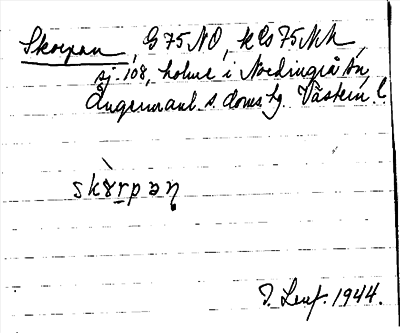 Skorpan, G 75 NO, kls 75 NN,
sj. 108, holme i Nordingrå sn,
Ångermanl. s. doms hg. Västern. l.
skɤ̀rpan̥
I. Leuf. 1944.